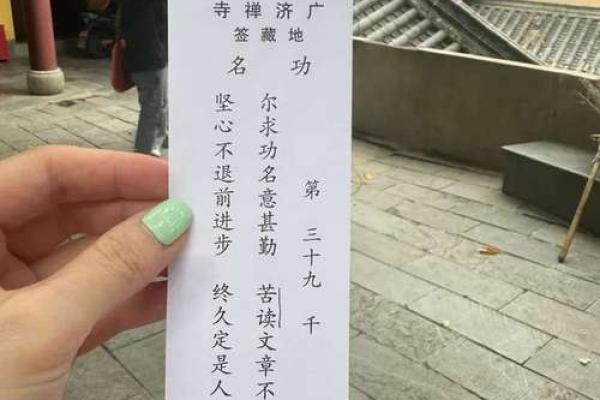 广济禅寺
地藏签
功名
第三十九 千
尔求功名意甚勤 苦读文章不
坚心不退前进步 终久定是人